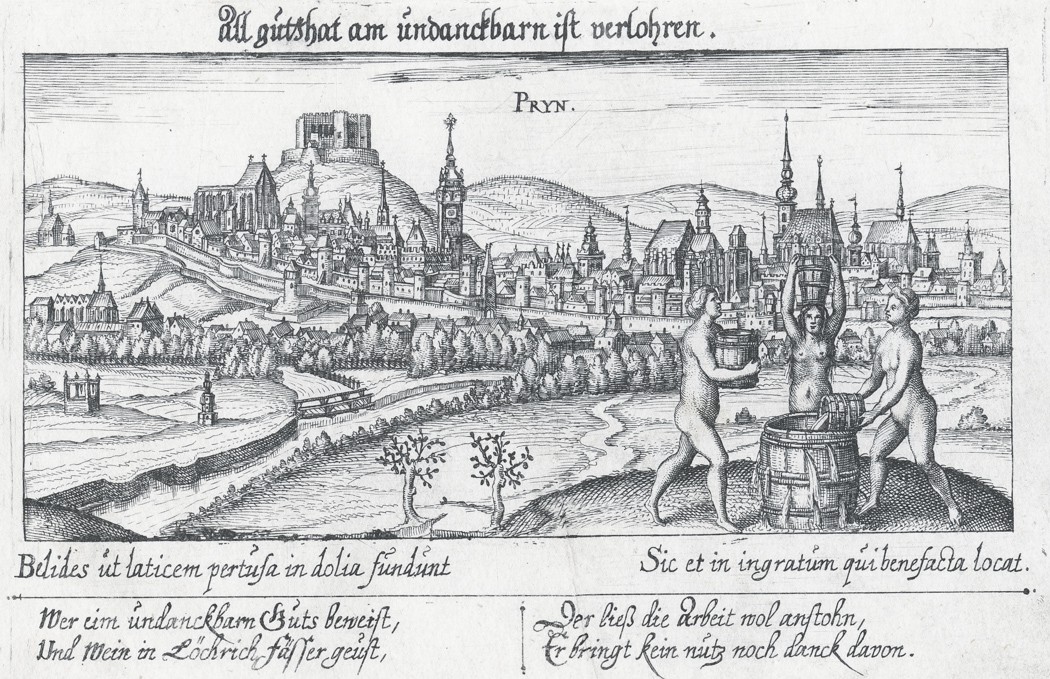 All gůtthat am ůndanckbarn ist verlohren.
PRYN.
Belides ůt laticem pertusa in dolia fundunt
Sic et in ingratům qui benefacta locat.
Wer eim ůndanckbarn Guts beweist,
Und Wein in Löchrich fässer geust,
Der ließ die Arbeit wol anstohn,
Er bringt kein nůtz noch danck davon.